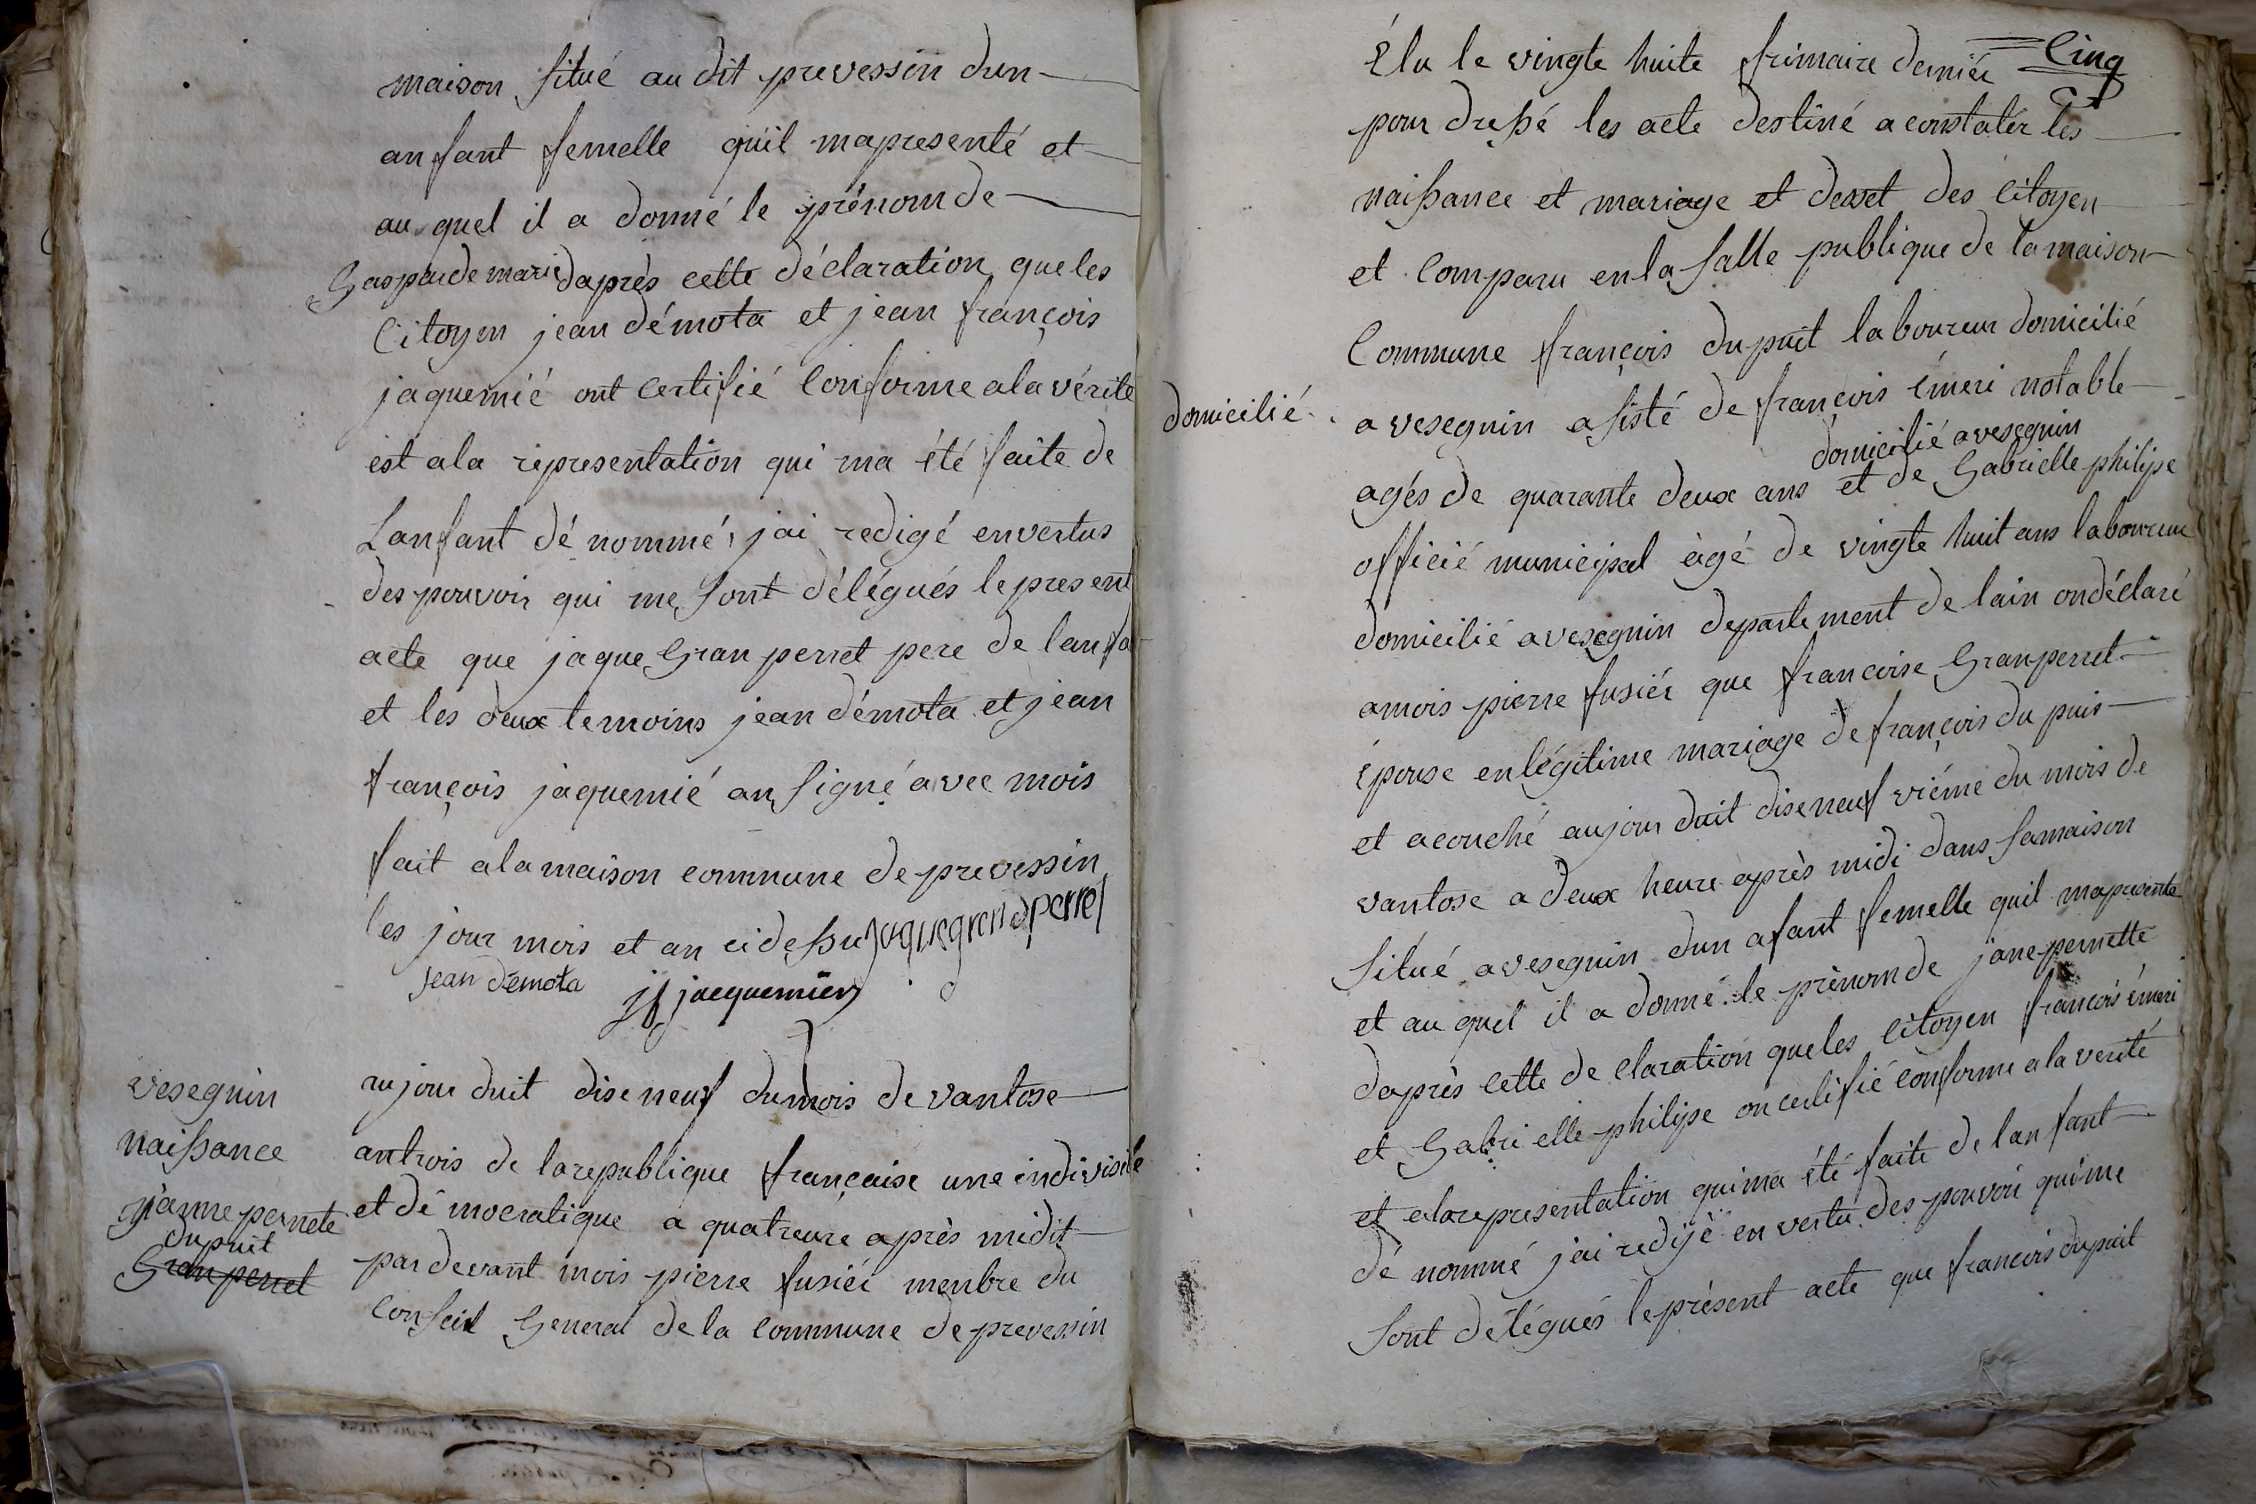 maison situé au dit prevessin dun
anfant femelle quil mapresenté et
au quel il a donné le prénom de
Gasparde marie daprès cette déclaration que les
Citoyen jean démota et jean françois
jaquemié ont certifié conforme ala vérité
est ala representation qui ma été faite de
Lanfant dé nommé, jai redigé envertus
des pouvoir qui me sont délégués le present
acte que jaque Gran perret pere de lanfa
et les deux temoins jean démota et jean
françois jaquemié an signé avec mois
fait ala maison commune de prevessin
les jour mois et an ci dessu jaque grandperret
jean démota jf jacquemier
vesegnin
naissance
jianne pernete
dupuit
Granperret
aujour duit dise neuf du mois de vantose
antrois de la republique française une indivisible
et dé mocratique a quatreure après midit
par devant mois pierre fusiér menbre du
Conseil General de la commune de prevessin
Cinq
Élu le vingte huite frimaire derniér
pour dressé les acte destiné a constatér les
naissance et mariage et deset des citoyen
et comparu en la salle publique de la maison
Commune françois dupuit laboureur domicilié
domicilié
a vesegnin asisté de françois émeri notable
domicilié a vesegnin
agés de quarante deux ans et de Gabrielle philipe
officié municipal âgé de vingte huit ans laboureur
domicilié a vesegnin departement de lain ondéclaré
amois pierre fusiér que francoise Granperret
épouse en légitime mariage de françois du puis
et acouché aujour duit dise neuf viéme du mois de
vantose a deux heure après midi dans sa maison
situé a vesegnin dun afant femelle quil mapresente
et au quel il a donné le prènom de jane pernette
daprès cette de claration que les citoyen francois émeri
et Gabrielle philipe on certifié conforme ala verité
et ala representation qui ma été faite de lanfant
dé nommé jai redijé en vertu des pouvoir qui me
sont délégués le présent acte que francois dupuit